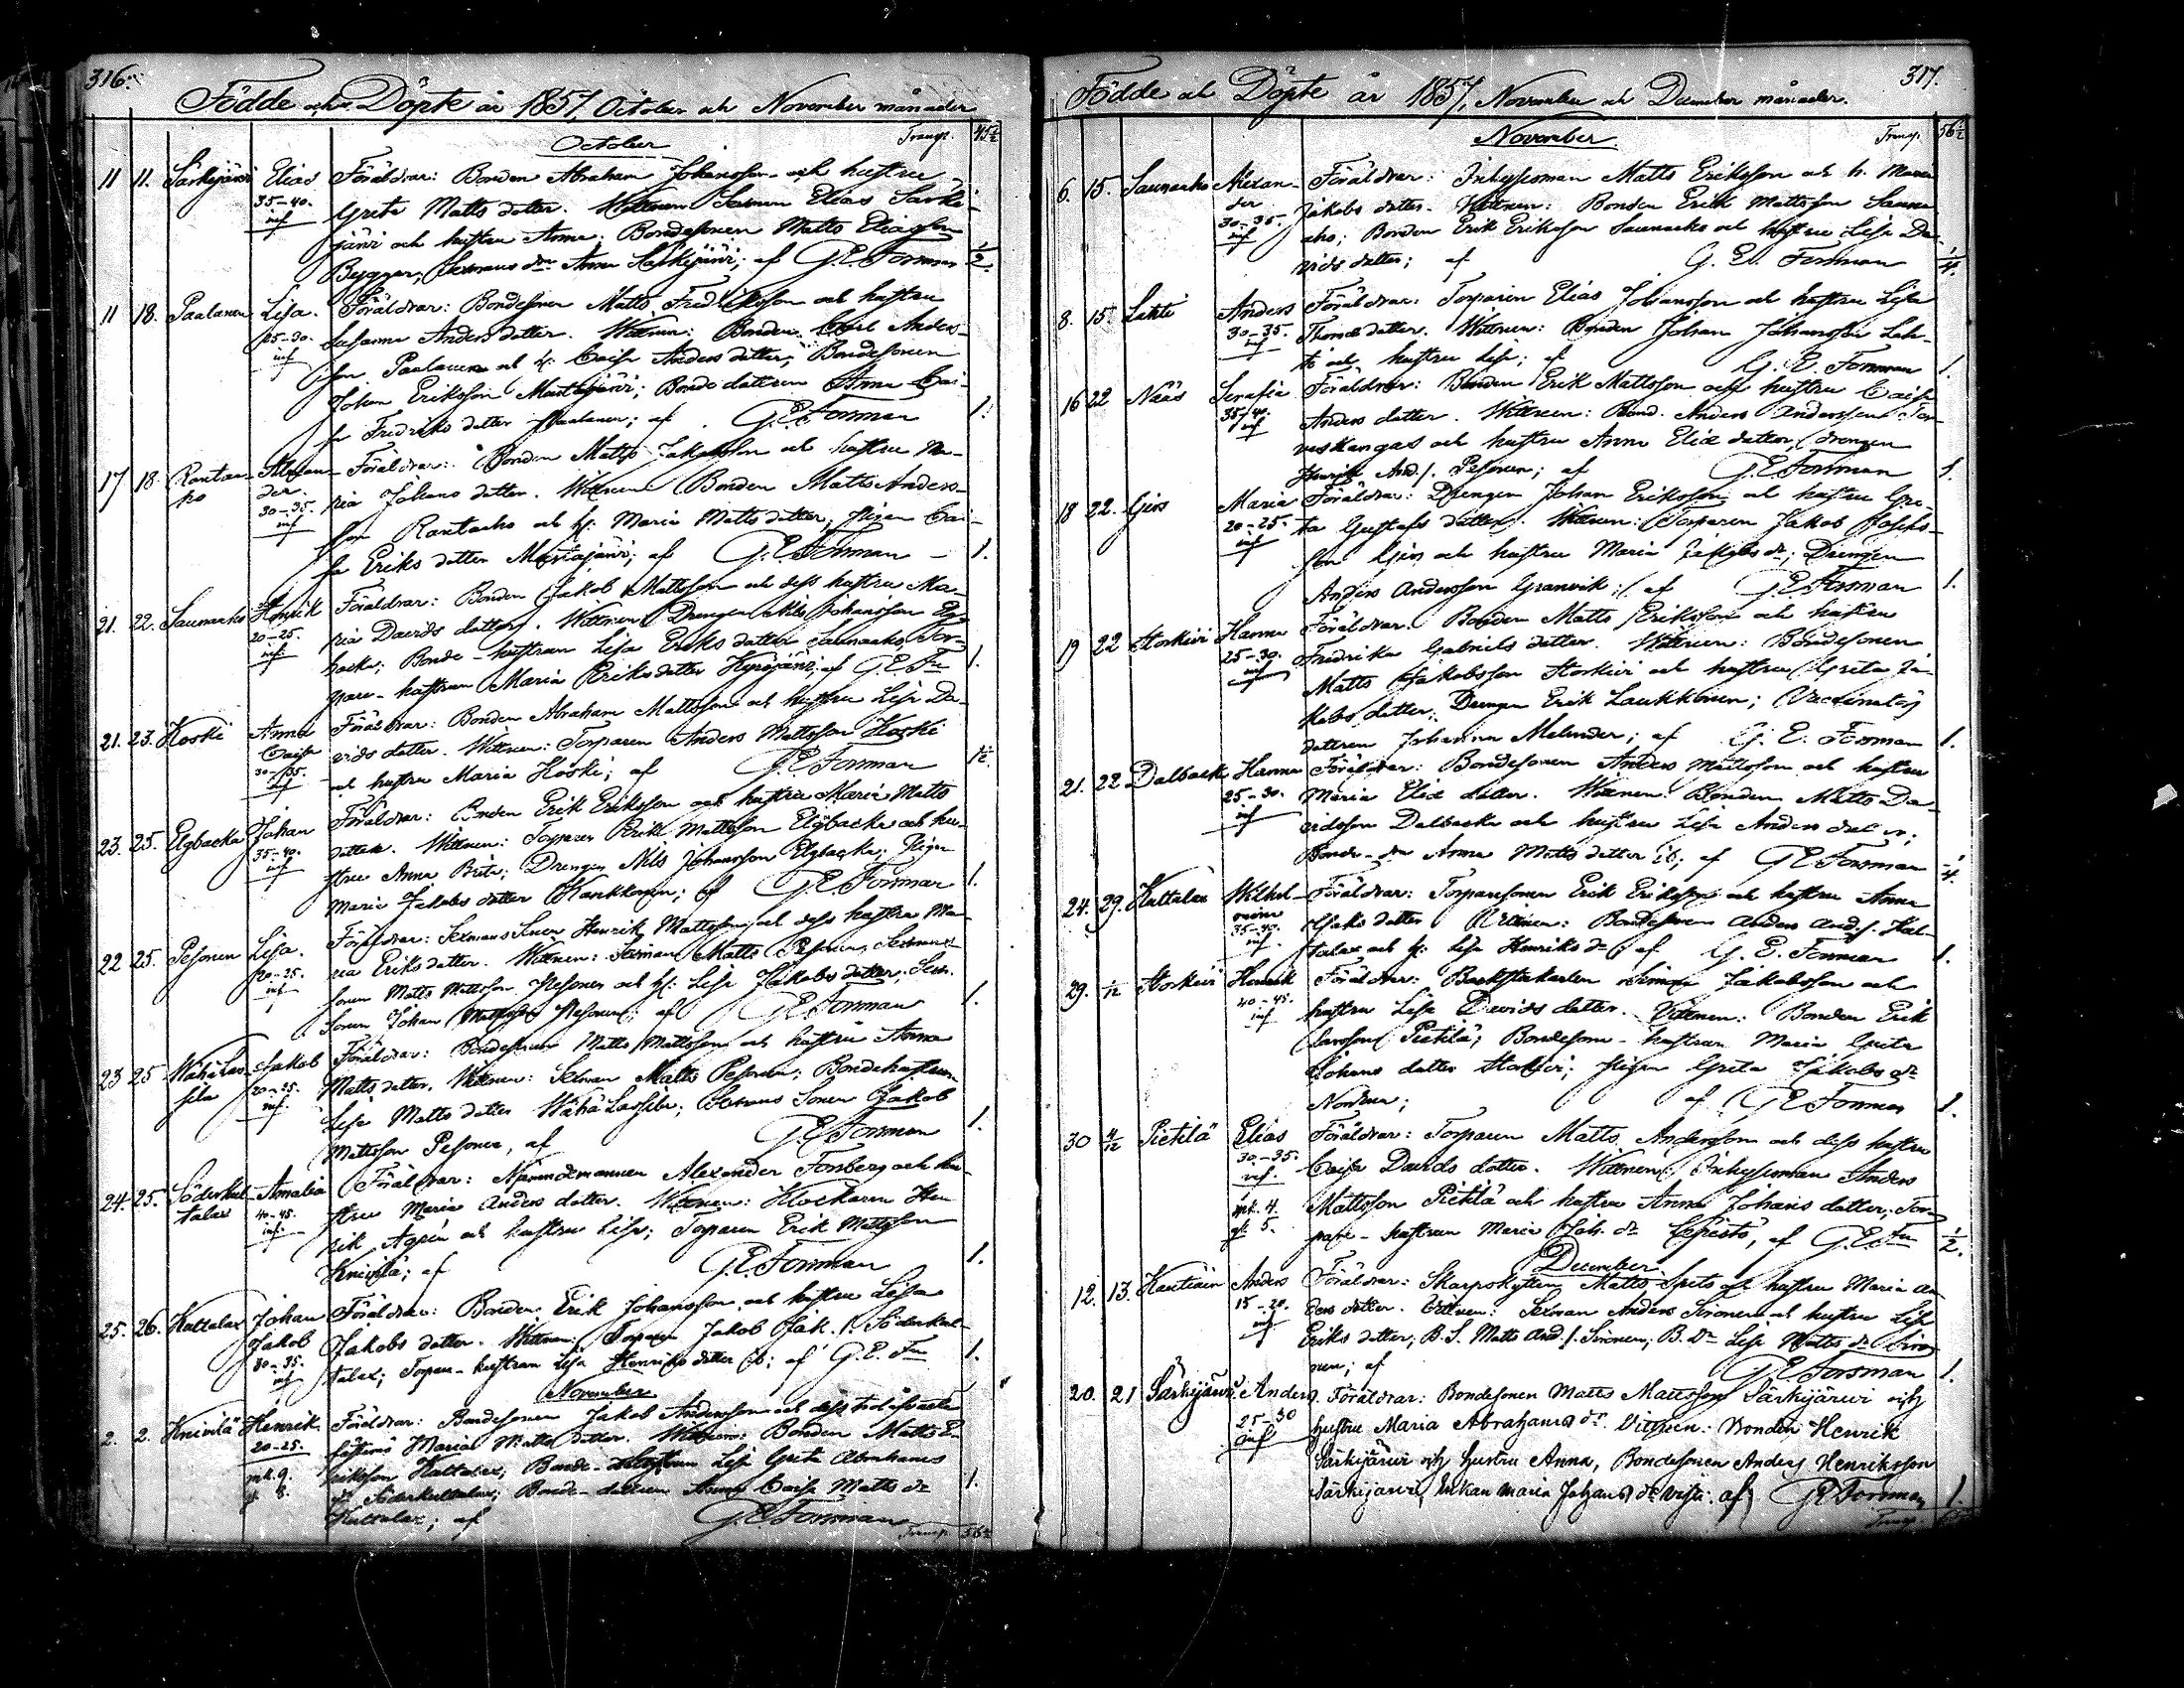 316.
Födde och Döpte år 1857, October och November månader
October
Transp. 45½
11 11. Särkijärvi Elias Föräldrar: Bonden Abraham Johansson och hustru
35-40. Greta Matts dotter. Wittnen Sexman Elias Särki-
inf järvi och hustru Anna. Bondesonen Matts Eliasson
Byggar, Sexmans dr Anna Särkijärvi; af G.E. Forsman ½.
11 18. Paalanen Lisa. Föräldrar: Bondesonen Matts Fredriksson och hustru
25-30. Susanna Anders dotter. Wittnen: Bonden Carl Anders-
inf son Paalanen och h: Caisa Anders dotter, Bondesonen
Johan Eriksson Mustajärvi; Bonde dottren Anna Cai-
sa Fredriks dotter Paalanen; af G.E. Forsman 1.
17 18. Rantaa- Alexan- Föräldrar: Bonden Matts Jakobsson och hustru Ma-
ho der. ria Johans dotter. Wittnen Bonden Matts Anders-
30-35. son Rantaho och h: Maria Matts dotter, Pigan Cai-
inf sa Eriks dotter Mustajärvi; af G.E. Forsman 1.
21. 22. Saunaaho Henrik Föräldrar: Bonden Jakob Mattsson och dess hustru Ma-
20-25. ria Davids dotter. Wittnen Drengen Nils Johansson Elg-
inf backa; Bonde-hustrun Lisa Eriks dotter Saunaaho, Tor-
pare-hustrun Maria Eriks dotter Kyröjärvi; af G.E. Fn 1.
21. 23. Koski Anna Föräldrar: Bonden Abraham Mattsson och hustru Lisa Da-
Caisa vids dotter. Wittnen: Torparen Anders Mattsson Koski
30-35. och hustru Maria Koski; af G.E. Forsman ½
inf
23. 25. Elgbacka Johan Föräldrar: Bonden Erik Eriksson och hustru Maria Matts
35-40. dotter. Wittnen: Torparen Erik Mattsson Elgbacka och hu-
inf stru Anna Brita; Drengen Nils Johansson Elgbacka; Pigan
Maria Jakobs dotter Kankkonen; af G.E. Forsman 1.
22 25. Pesonen Lisa. Föräldrar: Sexmans Sonen Henrik Mattsson och dess hustru Ma-
20-25. ria Eriks dotter. Wittnen: Sexman Matts Pesonen, Sexmans-
inf sonen Matts Mattsson Pesonen och h: Lisa Jakobs dotter. Sex.
Sonen Johan Mattsson Pesonen; af G.E. Forsman 1.
23 25 WähäLas- Jakob Föräldrar: Bondesonen Matts Mattsson och hustru Anna
sila 20-25. Matts dotter, Wittnen: Sexman Matts Pesonen; Bondehustrun
inf. Lisa Matts dotter WähäLassila; Sexmans Sonen Jakob
Mattsson Pesonen, af G.E. Forsman 1.
24. 25. Söderkul- Amalia Föräldrar: Nämndemannen Alexander Forsberg och hu-
talax 40-45. stru Maria Anders dotter. Wittnen: Klockaren Hen
inf. rik Agrén och hustru Lisa; Torparen Erik Mattsson
Knivilä; af G.E. Forsman 1.
25. 26. Kattalax Johan Föräldrar: Bonden Erik Johansson och hustru Lisa
Jakob Jakobs dotter. Wittnen: Torparen Jakob Jak. s. Söderkul-
30-35. talax; Torpare-hustrun Lisa Henriks dotter ib; af G.E. Fn 1.
inf
November
2. 2. Knivilä Henrik. Föräldrar: Bondesonen Jakob Andersson och dess trolofvade
20-25. fästmö Maria Matts dotter. Wittnen: Bonden Matts E-
mt. 9. riksson Kattalax; Bonde-hustrun Lisa Greta Abrahams
f. 8. dr Söderkultalax; Bonde-dottren Anna Caisa Matts dr 1.
Kattalax; af G.E. Forsman
Transp. 56½
317.
Födde och Döpte år 1857, November och December månader.
November.
Transp. 56½
6. 15. Saunaaho Alexan- Föräldrar: Inhysesman Matts Eriksson och h. Maria
der Jakobs dotter. Wittnen: Bonden Erik Mattsson Sauna
30-35. aho; Bonden Erik Eriksson Saunaaho och hustru Lisa Da-
inf vids dotter; af G.E. Forsman ¼.
8. 15. Lahti Anders Föräldrar: Torparen Elias Johansson och hustru Lisa
30-35. Thomas dotter. Wittnen: Bonden Johan Johansson Lah-
inf ti och hustru Lisa; af G.E. Forsman 1.
16 22 Näås Serafia Föräldrar: Bonden Erik Mattsson och hustru Caisa
35-40. Anders dotter. Wittnen: Bond. Anders Andersson Ter-
inf vaskangas och hustru Anna Eliæ dotter, Drengen
Henrik And. s. Pesonen; af G.E. Forsman 1.
18 22. Girs Maria Föräldrar: Drengen Johan Eriksson och hustru Gre-
20-25. ta Gustafs dotter. Wittnen: Torparen Jakob Josefs-
inf son Girs och hustru Maria Jakobs dr; Drengen
Anders Andersson Granvik; af G.E. Forsman 1.
19 22 Storkivi Hanna Föräldrar. Bonden Matts Eriksson och hustru
25-30. Fredrika Gabriels dotter. Wittnen: Bondesonen
inf Matts Jakobsson Storkivi och hustru Greta Ja-
kobs dotter; Drengen Erik Laukkonen; Vaccinatörs
dottren Johanna Melander; af G.E. Forsman 1.
21. 22 Dalbacka Hanna Föräldrar: Bondesonen Anders Mattsson och hustru
25-30. Maria Eliæ dotter. Wittnen: Bonden Matts Da-
inf vidsson Dalbacka och hustru Lisa Anders dotter;
Bonde-dr Anna Matts dotter ib; af G.E. Forsman ¼.
24. 29. Kattalax Wilhel- Föräldrar: Torparesonen Erik Eriksson och hustru Anna
mina Isaks dotter Wittnen: Bondesonen Anders And. s. Kat-
35-40. talax och h: Lisa Henriks dr; af G.E. Forsman 1.
inf.
29. /12 Storkivi Henrik Föräldrar: Backstukarlen Simon Jakobsson och
40-45. hustru Lisa Davids dotter. Vittnen: Bonden Erik
inf Larsson Pietilä; Bondesons-hustrun Maria Greta
Johans dotter Storkivi; Pigan Greta Jakobs dr
; af G.E. Forsman 1.
30 4/12 Pietilä Elias Föräldrar: Torparen Matts Andersson och dess hustru
30-35. Caisa Davids dotter. Wittnen: Inhysesman Anders
inf. Mattsson Pietilä och hustru Anna Johans dotter; Tor-
mt. 4. pare-hustrun Maria Joh. dr Lepistö, af G.E. Fn ½.
f. 5.
December
12. 13. Kautiain Anders Föräldrar: Skarpskytten Matts Spets och hustru Maria An
15-20. ders dotter. Vittnen: Sexman Anders Sironen och hustru Lisa
inf Eriks dotter; B.S. Matts And. s. Sironen; B. Dr Lisa Matts dr Siro
nen; af G.E. Forsman 1.
20. 21 Särkijärwi. Anders. Föräldrar: Bondesonen Matts Mattsson Särkijärwi och
25-30 hustru Maria Abrahams dr. Vittnen: Bonden Henrik
inf Särkijärwi och hustru Anna, Bondesonen Anders Henriksson
Särkijärwi, Enkan Maria Johans dr; af G.E. Forsman 1.
Transp.